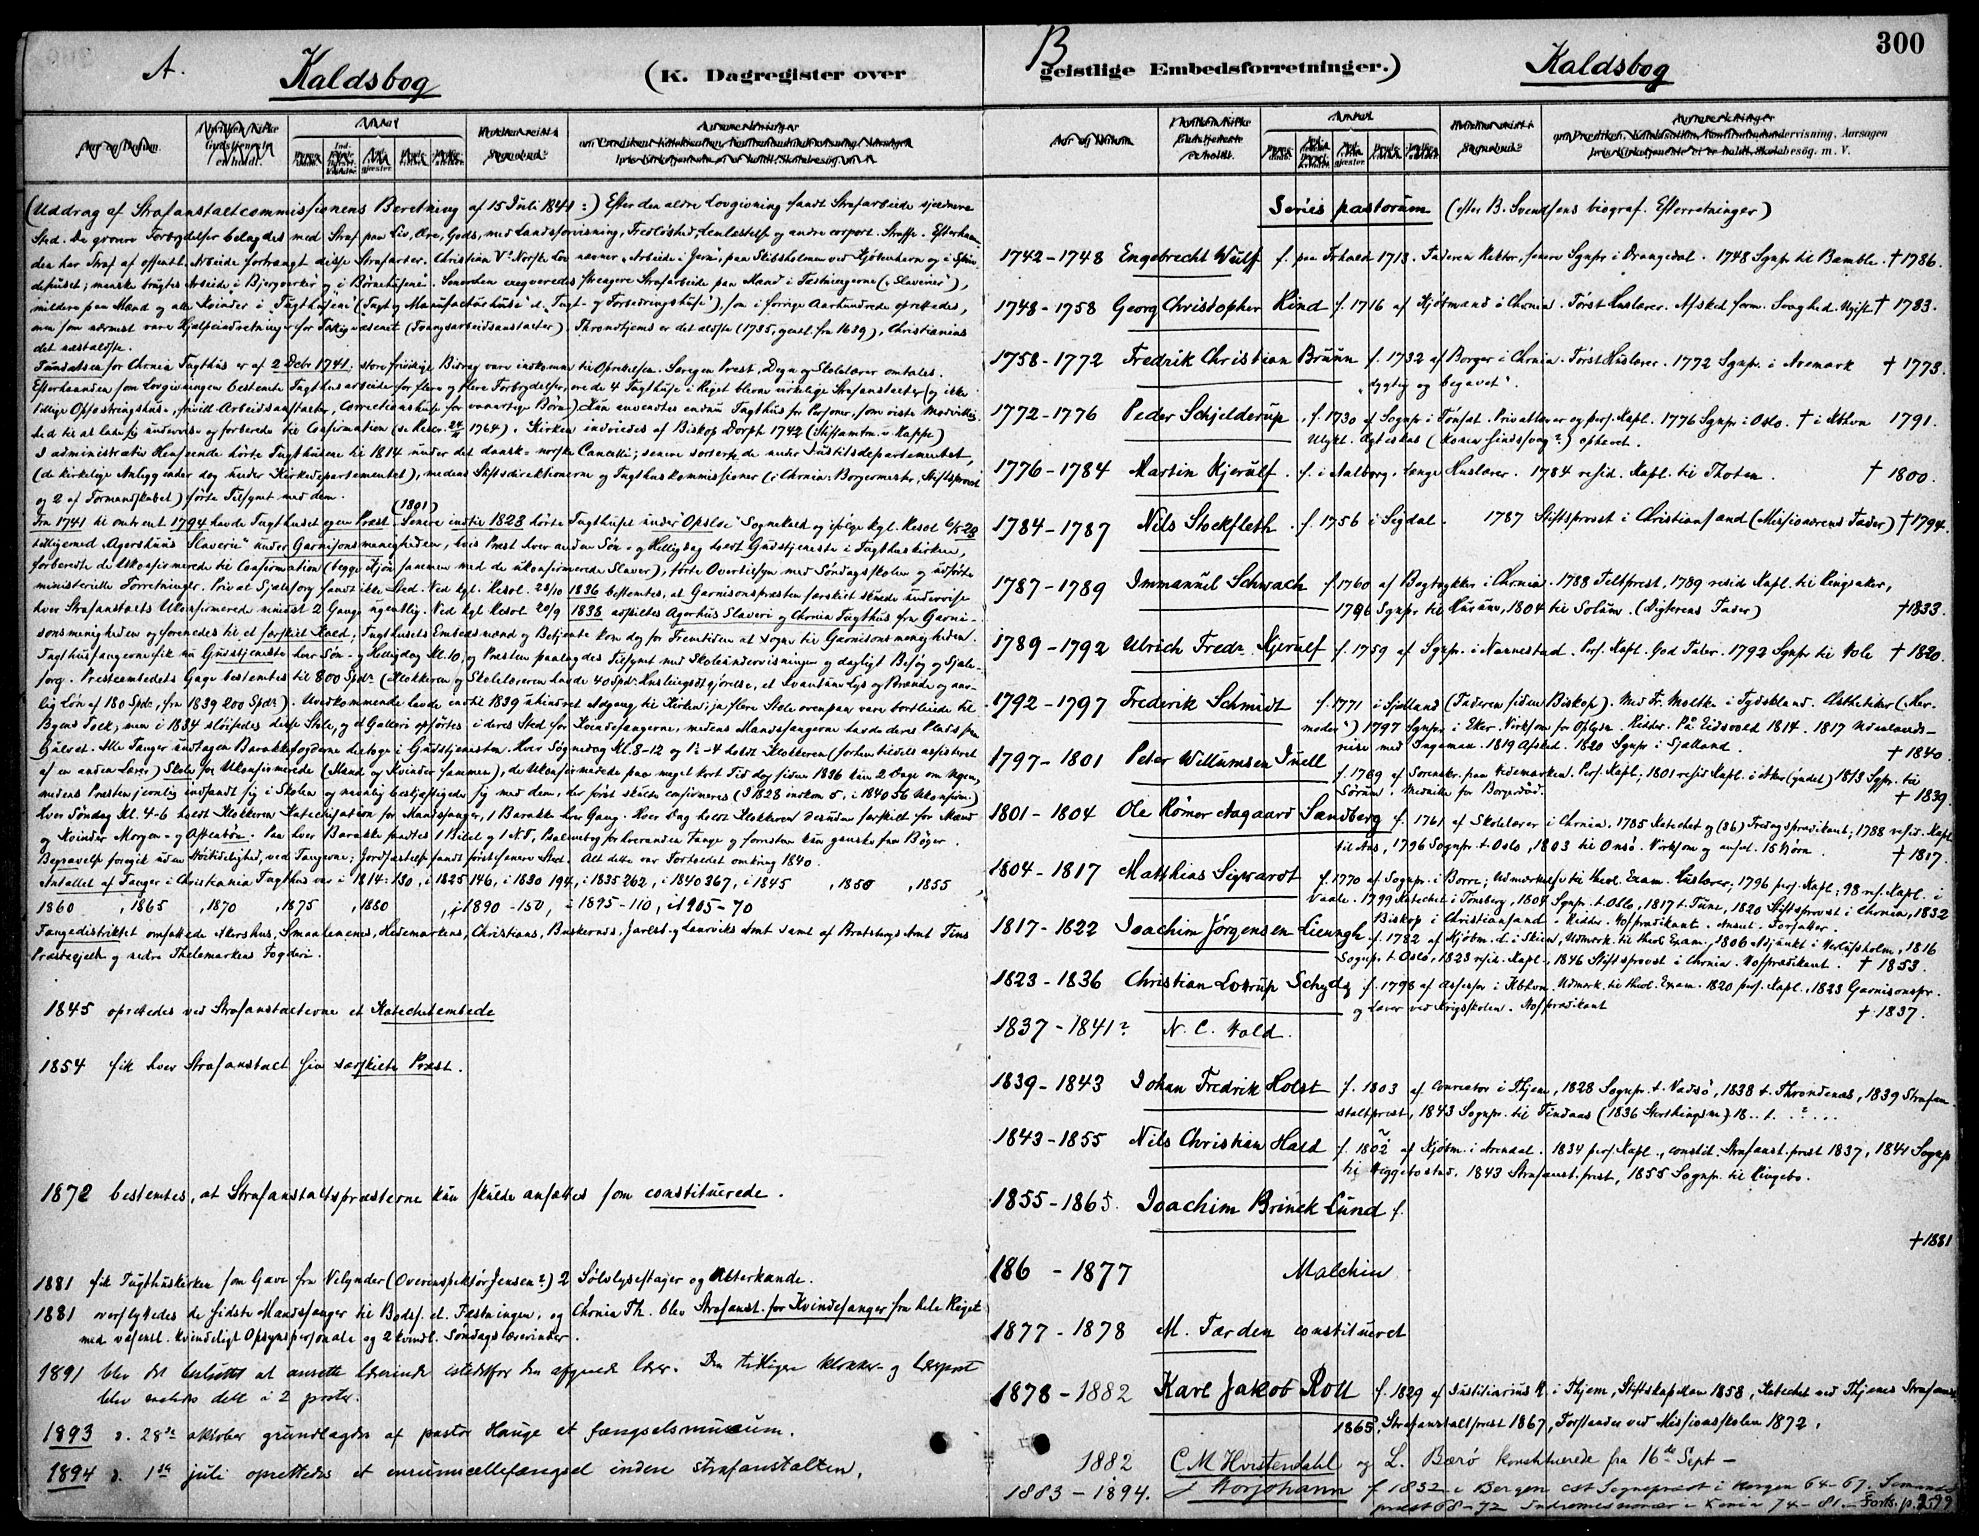 A.
Kaldsbog
(K. Dagregister over
(Uddrag af Strafanstaltcommissionens Beretning af 15 Juli 1841 :) Efter den ældre Lovgivning fandt Strafarbeide sjeldnere
Sted. De grovere Forbrydelser belagdes med Straf paa Liv, Ære, Gods, med Landsforvisning, Fredløshed, Lemlæstelse og andre corpor. Straffe. Efterhaan-
den har Straf af offentl. Arbeide fortrængt disse Strafarter. Christian V's Norske Lov nævner "Arbeide i Jern", paa Skibsholmen ved Kjøbenhavn og i Spin-
dehuset; menske brugtes Arbeide i Bjergværker og i Børnehusene. Senere den strengere Strafarbeide paa Mand i Fæstningerne ("Slaverier"),
mildere paa Mand og alle Kvinder i Tugthusene ("Tugt og Manufacturhuse" el. "Tugt- og Forbedringshuse"), som i forrige Aarhundrede oprettedes,
men som nærmest vare Hjælpeindretninger for Fattigvæsenet (Tvangsarbeidsanstalter). Throndhjems er det ældste (1735, fra 1639), Christianias
det næstældste.
Fundatsen for Chrnia Tugthus er af 2 Debr 1741, store frivillige Bidrag vare indkomne til Oprettelsen. Særegen Præst, Degn og Skolelærer omtales.
Efterhaanden som Lovgivningen bestemte Tugthusarbeide for flere og flere Forbrydelser, ere de 4 Tugthuse i Riget blevne virkelige Strafanstalter (og ikke
tillige Opfostringshus, frivill. Arbeidsanstalter, Correctionshus for vanartige Børn). Kun anvendtes endnu Tugthus for Personer, som viste Modvillig-
hed til at lade sig undervise og forberede til Confirmation (se Reskr. 1764). Kirken indviedes af Biskop Dorph 1742 (Stiftsamtm. v. Rappe)
I administrativ Henseende hørte Tugthusene til 1814 under det dansk-norske Cancelli; senere under Justitsdepartementet,
(de kirkelige Anliggender dog under Kirkedepartementet), medens Stiftsdirektionerne og Tugthuskommissioner (i Chrnia: Borgermester, Stiftsprovst
og 2 af Formandskabet) førte Tilsynet med dem.
(1801)
Fra 1741 til omtrent 1794 havde Tugthuset egen Præst. Senere indtil 1828 hørte Tugthuset under "Opsloe" Sognekald og ifølge kgl. Resol.
tilligemed "Agershuus Slaverie" under Garnisonsmenigheden, hvis Præst hver anden Søn- og Helligdag holdt Gudstjeneste i Tugthuskirken,
forberedte de Ukonfirmerede til Confirmation (begge Kjøn sammen med de ukonfirmerede Slaver), førte Overtilsyn med Søndagsskolen og udførte
ministerielle Forretninger. Privat Sjælesorg fandt ikke Sted. Ved kgl. Resol. 28/10 1836 bestemtes, at Garnisonspræsten særskilt skulde undervise
hver Strafanstalts Ukonfirmerede mindst 2 Gange ugentlig. Ved kgl. Resol. 20/9 1838 adskiltes Agerhus Slaveri og Chrnia Tugthus fra Garni-
sonsmenigheden og forenedes til et særskilt Kald, Tugthusets Embedsmænd og Betjente kom dog for Fremtiden at sogne til Garnisonsmenigheden.
Tugthusfangerne fik nu Gudstjeneste hver Søn- og Helligdag Kl. 10, og Præsten paalagdes Tilsynet med Skoleundervisningen og dagligt Besøg og Sjæle-
sorg. Præsteembedets Gage bestemtes til 800 Spdr. (Klokkeren og Skolelæreren havde 40 Spdr. Huslejegodtgjørelse, et Kvantum Lys og Brænde og aar-
lig Løn af 180 Spdr., fra 1839 200 Spdr.). Uvedkommende havde indtil 1839 uhindret Adgang til Kirken; ja flere Stole ovenpaa vare bortleiede til
Byens Folk; men i 1834 sløifedes disse Stole, og et Galleri opførtes i deres Sted for Kvindefangerne, medens Mandsfangerne havde deres Plads paa
Gulvet. Alle Fanger undtagen Barakkefogderne deltoge i Gudstjenesten. Hver Søgnedag Kl. 8-12 og 1½-4 holdt Klokkeren (forhen tildels assisteret
af en anden Lærer) Skole for Ukonfirmerede (Mænd og Kvinder sammen), de Ukonfirmerede paa meget kort Tid dog siden 1836 kun 2 Dage om Ugen,
medens Præsten jevnlig indfandt sig i Skolen og navnlig beskjæftigede sig med dem, der først skulde confirmeres (I 1828 indkom 5, i 1840 56 Ukonfirm.)
Hver Søndag Kl. 4-6 holdt Klokkeren Katechisation for Mandsfanger, 1 Barakke hver Gang. Hver Dag holdt Klokkeren desuden særskilt for Mænd
og Kvinder Morgen- og Aftenbøn. Paa hver Barakke fandtes 1 Bibel og 1 N.T., Psalmebog for hverandre Fange og forresten kun ganske faa Bøger.
Begravelse foregik uden Høitidelighed, ved Fangerne; Jordfæstelse fandt først senere Sted. Alt dette var Forholdet omkring 1840.
Antallet af Fanger i Christiania Tugthus var i 1814: 130, i 1825 146, i 1830 194, i 1835 262, i 1840 367, i 1845 , 1850 , 1855 ,
1860 , 1865 , 1870 , 1875 , 1880 , i 1890 - 150, i 1895 - 110, i 1905 - 70
Fangedistriktet omfattede Akershus, Smaalenenes, Hedemarkens, Christians, Buskeruds, Jarlsb. og Laurviks Amt samt af Bratsbergs Amt Tins
Præstegjeld og nedre Thelemarkens Fogderi.
1845 oprettedes ved Strafanstalterne et Katechetembede
1854 fik hver Strafanstalt sin særskilte Præst.
1872 bestemtes, at Strafanstaltspræsterne kun skulde ansættes som constituerede.
1881 fik Tugthuskirken som Gave fra Velynder (Overinspektør Jensen?) 2 Sølvlysestager og Alterkande.
1881 overflyttedes de sidste Mandsfanger til Bodsf. el. Fæstningen, og Chrnia Th. blev Strafanst. for Kvindefanger fra hele Riget
med væsentl. kvindeligt Opsynspersonale og 2 kvindl. Søndagslærerinder.
1891 blev det besluttet at ansætte lærerinde istedetfor den afgaaede lærer. Den tidligere klokker- og lærerpost
blev saaledes delt i 2 poster.
1893 d. 28de oktober grundlagdes af pastor Hauge et fængselsmuseum.
1894 d. 1ste juli oprettedes et enrumscellefængsel inden strafanstalten.
B
geistlige Embedsforretninger.)
Kaldsbog
300
Series pastorum (efter B. Svendsens biograf. Efterretninger)
1742-1748 Engebrecht Wulff f. paa 1713. Faderen Rektor, senere Sgnpr i Drangedal. 1748 Sgnpr til Bamble. † 1786.
1748-1758 Georg Christopher Kind f. 1716 af Kjøbmand i Chrnia. Først Huslærer. Afsked form. Svaghed. Ugift † 1783.
1758-1772 Fredrik Christian Bruun f. 1732 af Borger i Chrnia. Først Huslærer. 1772 Sgnpr. i Aremark † 1773.
"dygtig og begavet".
1772-1776 Peder Schjelderup f. 1730 af Sognpr i Tønset. Privatlærer og pers. Kapl. 1776 Sgnpr i Oslo. † i Kbhvn 1791.
Ulykl. Ægteskab ( ) ophævet.
1776-1784 Martin Kjerulf. f. i Aalborg. Længe Huslærer. 1784 resid. Kapl. til Thoten. † 1800.
1784-1787 Nils Stockfleth. f. 1756 i Sigdal. 1787 Stiftsprovst i Christiansand (Missionærens Fader) † 1794.
1787-1789 Immanuel Schwach f. 1760 af Bogtrykker i Chrnia. 1788 Feltpræst, 1789 resid Kapl. til Ringsaker,
1796 Sgnpr. til Hurum, 1804 til Solum. (Digterens Fader) † 1833.
1789-1792 Ulrich Fredr Kjerulf f. 1759 af Sgnpr. i Nannestad. Pers. Kapl. God Taler. 1792 Sgnpr til Hole † 1820.
1792-1797 Frederik Schmidt f. 1771 i Sjælland (Faderen siden Biskop). Med Gr. Moltke i Tydskland. Æsthetiker ("Har-
modius") 1797 Sgnpr i Eker. Virksom for Oplysn. Ridder. Paa Eidsvold 1814. 1817 Udenlands-
reise med Ingeman. 1819 Afsked. 1820 Sgnpr i Sjælland. † 1840.
1797-1801 Peter Willumsen Juell f. 1769 af Sorenskr. paa Hedemarken. Pers. Kapl., 1801 resid Kapl. i Aker (yndet) 1813 Sgpr. til
Sørum. Medaille for Borgerdaad. † 1839.
1801-1804 Ole Rømer Aagaard Sandberg f. 1761 af Skolelærer i Chrnia. 1785 Katechet og (86) Fredagsprædikant; 1788 resid. Kapl.
til Aas, 1796 Sognpr. t. Oslo, 1803 til Onsø. Virksom og anset. 15 Børn. † 1817.
1804-1817 Matthias Sigwardt f. 1770 af Sognpr. i Borre; Udmærkelse til theol. Exam. Huslærer; 1796 pers. Kapl; 98 res. Kapl. i
Vaale. 1799 Katechet i Tønsberg, 1804 Sgnpr. t. Oslo, 1817 t. Tune, 1820 Stiftsprovst i Chrnia, 1832
Biskop i Christiansand. Ridder. Hofprædikant. Anset. Forfatter.
1817-1822 Joachim Jørgensen Liengh f. 1782 af Kjøbm. d. i Skien, Udmærk. til theol. Exam., 1806 Adjunkt i Herlufsholm, 1816
Sognpr. t. Oslo, 1823 resid. Kapl., 1846 Stiftsprovst i Chrnia. Hofprædikant. † 1853.
1823-1836 Christian Lottrup Schydtz f. 1798 af Assessor i Kbhvn. Udmærk. til theol. Exam. 1820 pers. Kapl., 1823 Garnisonspr.
og Lærer ved Krigsskolen. Hofprædikant † 1837.
1837-1841? N. C. Hald.
1839-1843 Johan Fredrik Holst f. 1803 af Conrector i Thjem, 1828 Sognpr. t. Vadsø, 1838 t. Throndenæs, 1839 Strafan-
staltpræst, 1843 Sognpr. til Findaas (1836 Storthingsm.) 18..1. .?....
1843-1855 Nils Christian Hald f. 1802 af Kjøbm. i Arendal. 1834 pers. Kapl., constit. Strafanst.præst 1837, 1841 Sognpr
til Viggebostad. 1843 Strafanst.præst, 1855 Sognpr. til Ringebo.
1855-1865. Joachim Brinck Lund f.
† 1881
186 -1877 Malchin
1877-1878 M. Færden constitueret
1878-1882 Karl Jakob Roll f. 1829 af Justitiarius R. i Thjem, Stiftskapellan 1858, Katechet ved Thjems Strafanst
1865, Strafanstaltpræst 1867, Forstander ved Missionsskolen 1872.
1882 C M Horstendahl og L. Bærø konstituerede fra 16de Sept -
1883-1894. J Storjohann f 1832 i Bergen Sognepræst i 64-67. Sømands
præst 68-72 Indremissionær i Xania 74-81. Forts. p. 299